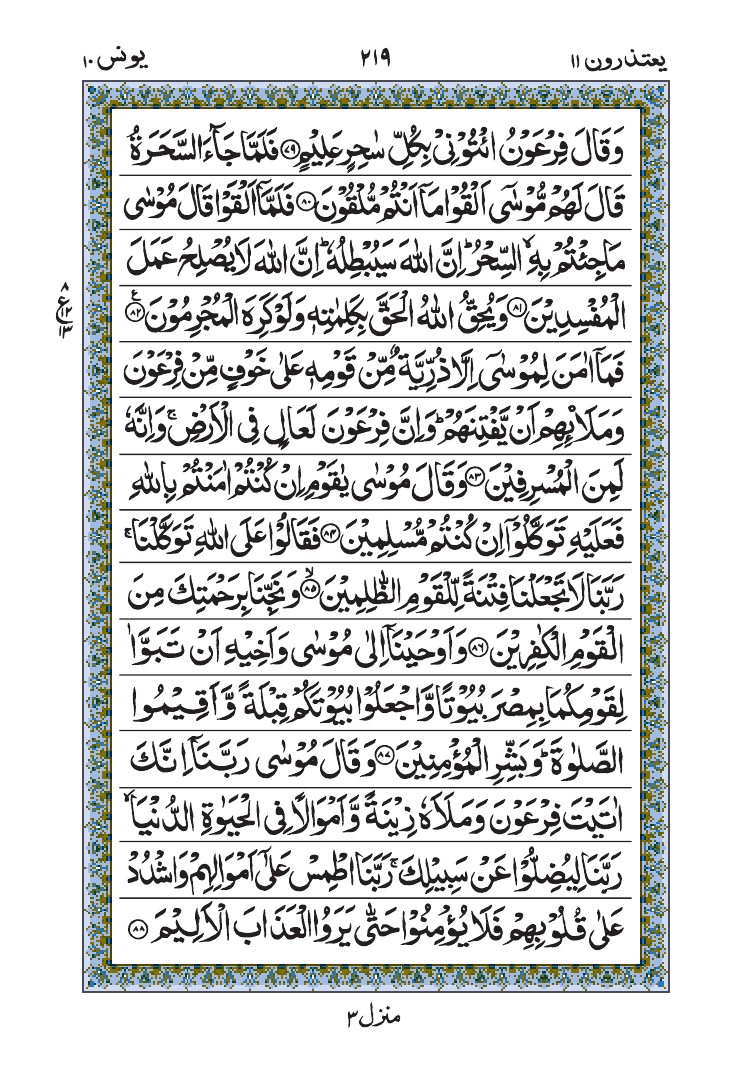 یعتذرون ۱۱
۲۱۹
یونس ۱۰
وَقَالَ فِرْعَوْنُ ائْتُوْنِیْ بِكُلِّ سٰحِرٍ عَلِیْمٍ ﴿۷۹﴾ فَلَمَّا جَآءَ السَّحَرَةُ
قَالَ لَهُمْ مُّوْسٰۤی اَلْقُوْا مَاۤ اَنْتُمْ مُّلْقُوْنَ ﴿۸۰﴾ فَلَمَّاۤ اَلْقَوْا قَالَ مُوْسٰی
مَا جِئْتُمْ بِهِ ۙ السِّحْرُ ؕ اِنَّ اللّٰهَ سَیُبْطِلُهٗ ؕ اِنَّ اللّٰهَ لَا یُصْلِحُ عَمَلَ
الْمُفْسِدِیْنَ ﴿۸۱﴾ وَیُحِقُّ اللّٰهُ الْحَقَّ بِكَلِمٰتِهٖ وَلَوْ كَرِهَ الْمُجْرِمُوْنَ ﴿۸۲﴾ ع
۸
ع ۱۲
۱۳
فَمَاۤ اٰمَنَ لِمُوْسٰۤی اِلَّا ذُرِّیَّةٌ مِّنْ قَوْمِهٖ عَلٰی خَوْفٍ مِّنْ فِرْعَوْنَ
وَمَلَا۟ئِهِمْ اَنْ یَّفْتِنَهُمْ ؕ وَاِنَّ فِرْعَوْنَ لَعَالٍ فِی الْاَرْضِ ۚ وَاِنَّهٗ
لَمِنَ الْمُسْرِفِیْنَ ﴿۸۳﴾ وَقَالَ مُوْسٰی یٰقَوْمِ اِنْ كُنْتُمْ اٰمَنْتُمْ بِاللّٰهِ
فَعَلَیْهِ تَوَكَّلُوْۤا اِنْ كُنْتُمْ مُّسْلِمِیْنَ ﴿۸۴﴾ فَقَالُوْا عَلَی اللّٰهِ تَوَكَّلْنَا ۚ
رَبَّنَا لَا تَجْعَلْنَا فِتْنَةً لِّلْقَوْمِ الظّٰلِمِیْنَ ﴿۸۵﴾ ۙ وَنَجِّنَا بِرَحْمَتِكَ مِنَ
الْقَوْمِ الْكٰفِرِیْنَ ﴿۸۶﴾ وَاَوْحَیْنَاۤ اِلٰی مُوْسٰی وَاَخِیْهِ اَنْ تَبَوَّاٰ
لِقَوْمِكُمَا بِمِصْرَ بُیُوْتًا وَّاجْعَلُوْا بُیُوْتَكُمْ قِبْلَةً وَّاَقِیْمُوا
الصَّلٰوةَ ؕ وَبَشِّرِ الْمُؤْمِنِیْنَ ﴿۸۷﴾ وَقَالَ مُوْسٰی رَبَّنَاۤ اِنَّكَ
اٰتَیْتَ فِرْعَوْنَ وَمَلَاَهٗ زِیْنَةً وَّاَمْوَالًا فِی الْحَیٰوةِ الدُّنْیَا ۙ
رَبَّنَا لِیُضِلُّوْا عَنْ سَبِیْلِكَ ۚ رَبَّنَا اطْمِسْ عَلٰۤی اَمْوَالِهِمْ وَاشْدُدْ
عَلٰی قُلُوْبِهِمْ فَلَا یُؤْمِنُوْا حَتّٰی یَرَوُا الْعَذَابَ الْاَلِیْمَ ﴿۸۸﴾
منزل ۳